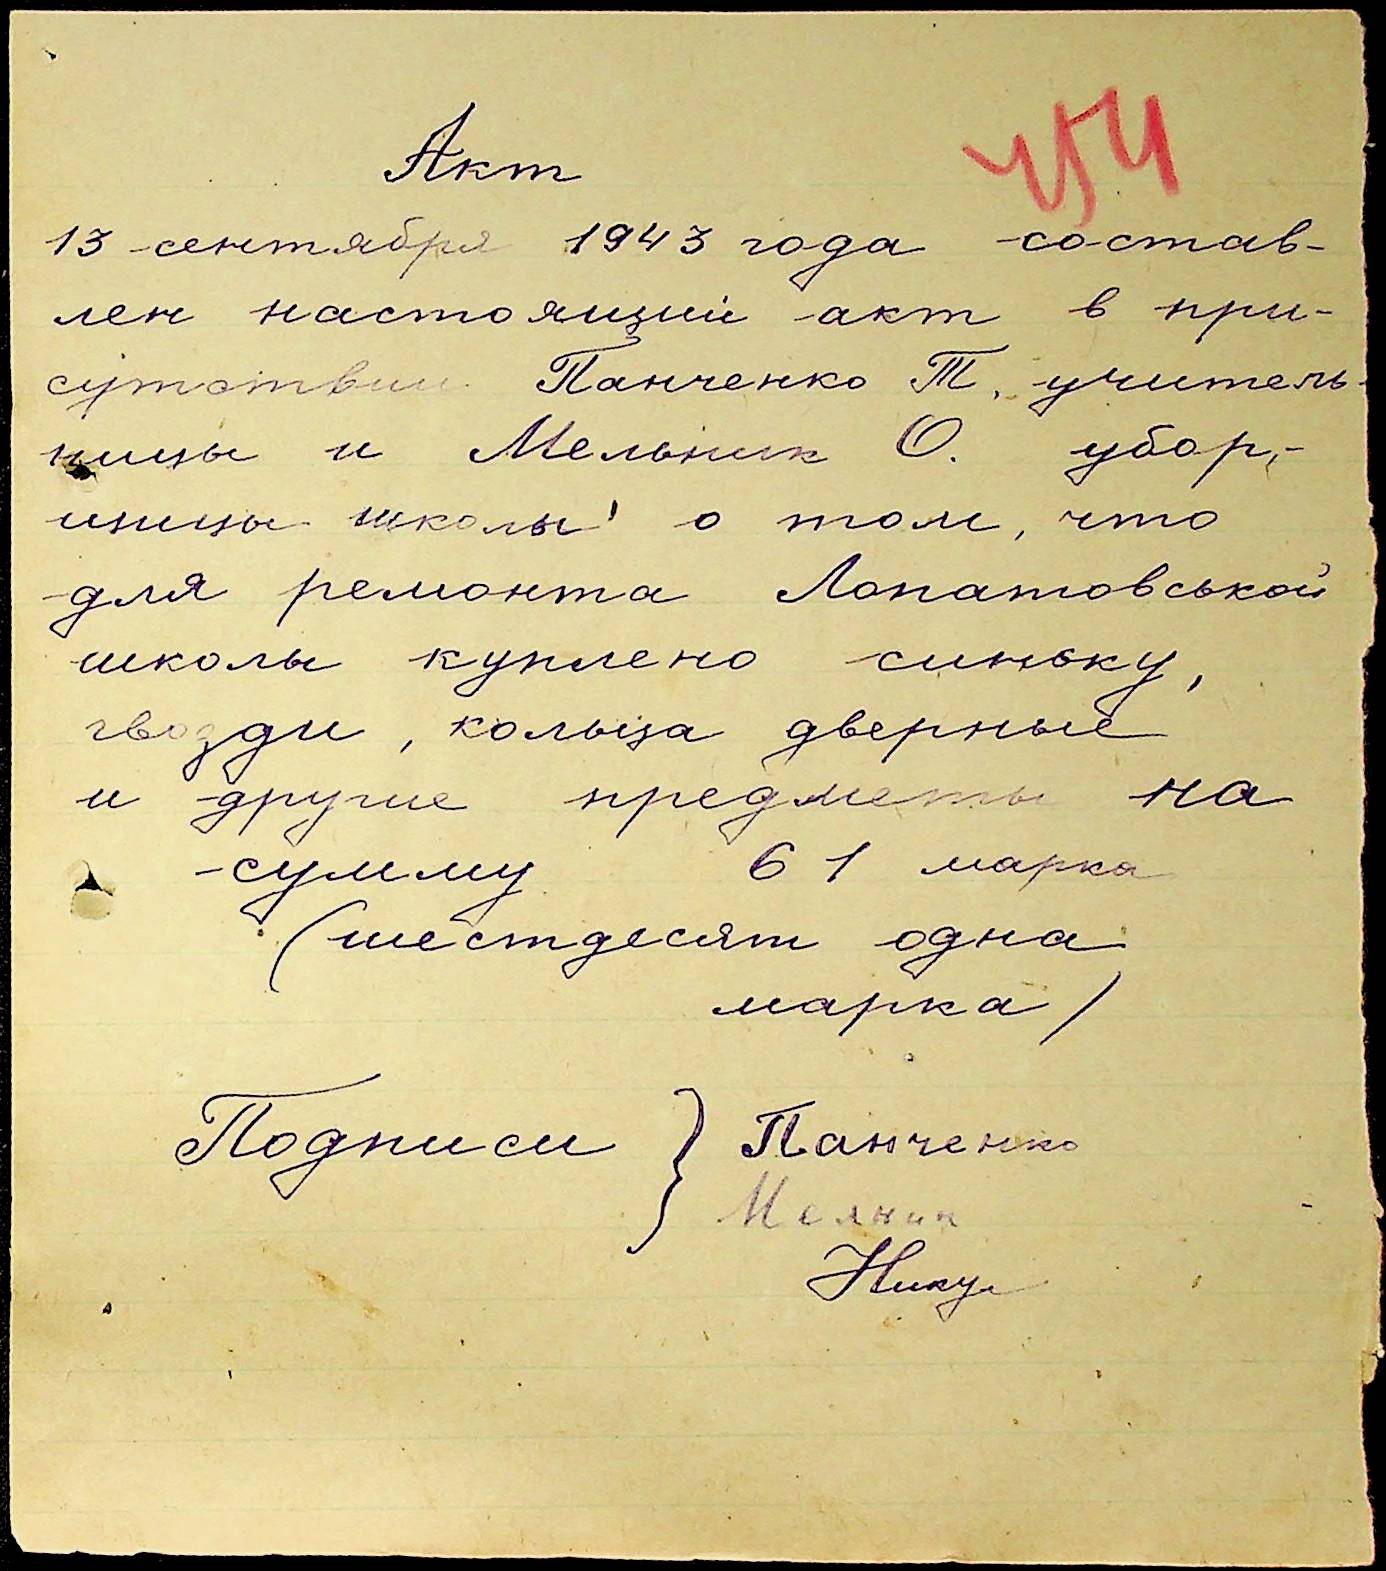 Акт
13 сентября 1943 года состав-
лен настоящий акт в при-
сутствии Панченко Т. учитель-
ницы и Мельник О. убор-
щицы школы о том, что
для ремонта Лопатовськой
школы куплено синьку,
гвозди, кольца дверные
и другие предметы на
сумму 61 марка
(шестдесят одна
марка)
Подписи } Панченко
Мелник